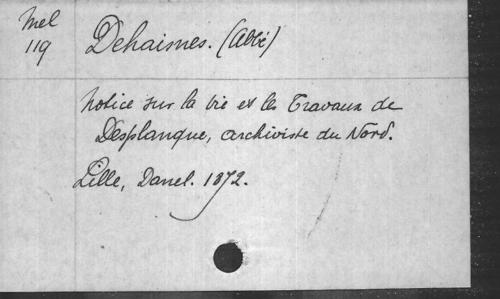 Mel
119
Dehaisnes. (Abbé)
Notice sur la vie et les Travaux de
Desplanque, archiviste du Nord.
Lille, Danel. 1872.